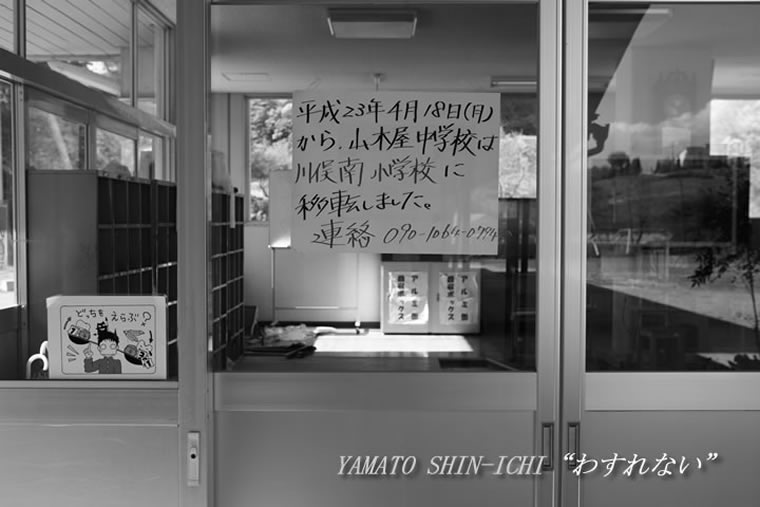 平成23年4月18日(月)
から、山木屋中学校は
川俣南小学校に
移転しました。
連絡 090-1064-0794
どっちをえらぶ?
アルミ缶
回収ボックス
アルミ缶
回収ボックス
YAMATO SHIN-ICHI “わすれない”